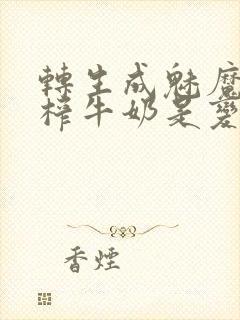 轉生成魅魔
榨牛奶是愛
香煙